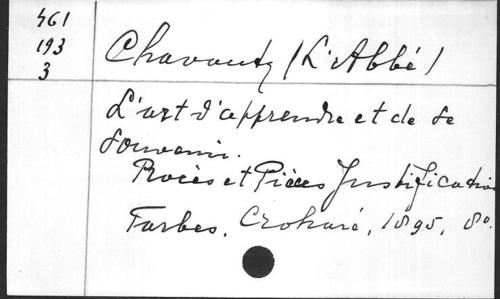 461
193
3
Chavauty (L'Abbé)
L'art d'apprendre et de se
souvenir.
Procès et Pièces Justificatives
Tarbes, Croharé, 1895, 8º.